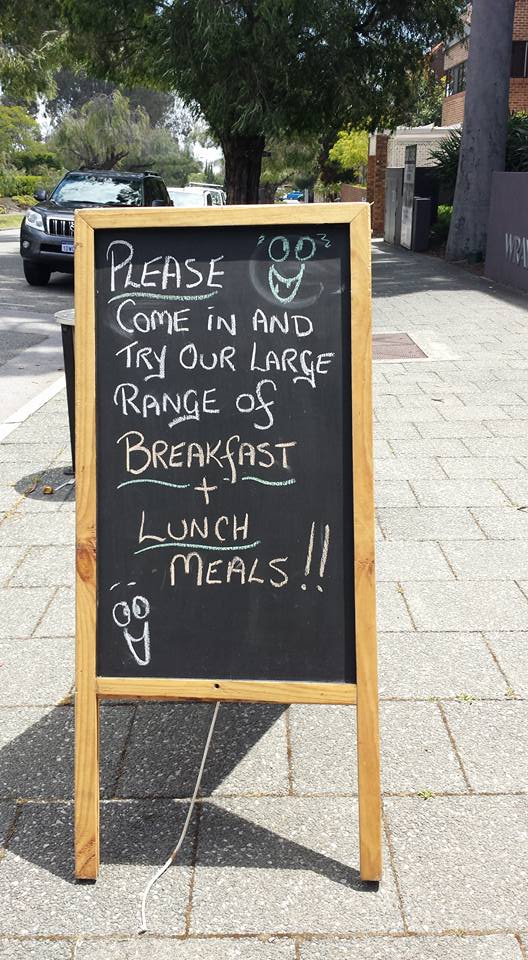 PLEASE
COME IN AND
TRY OUR LARGE
RANGE OF
BREAKFAST
+
LUNCH
MEALS!!